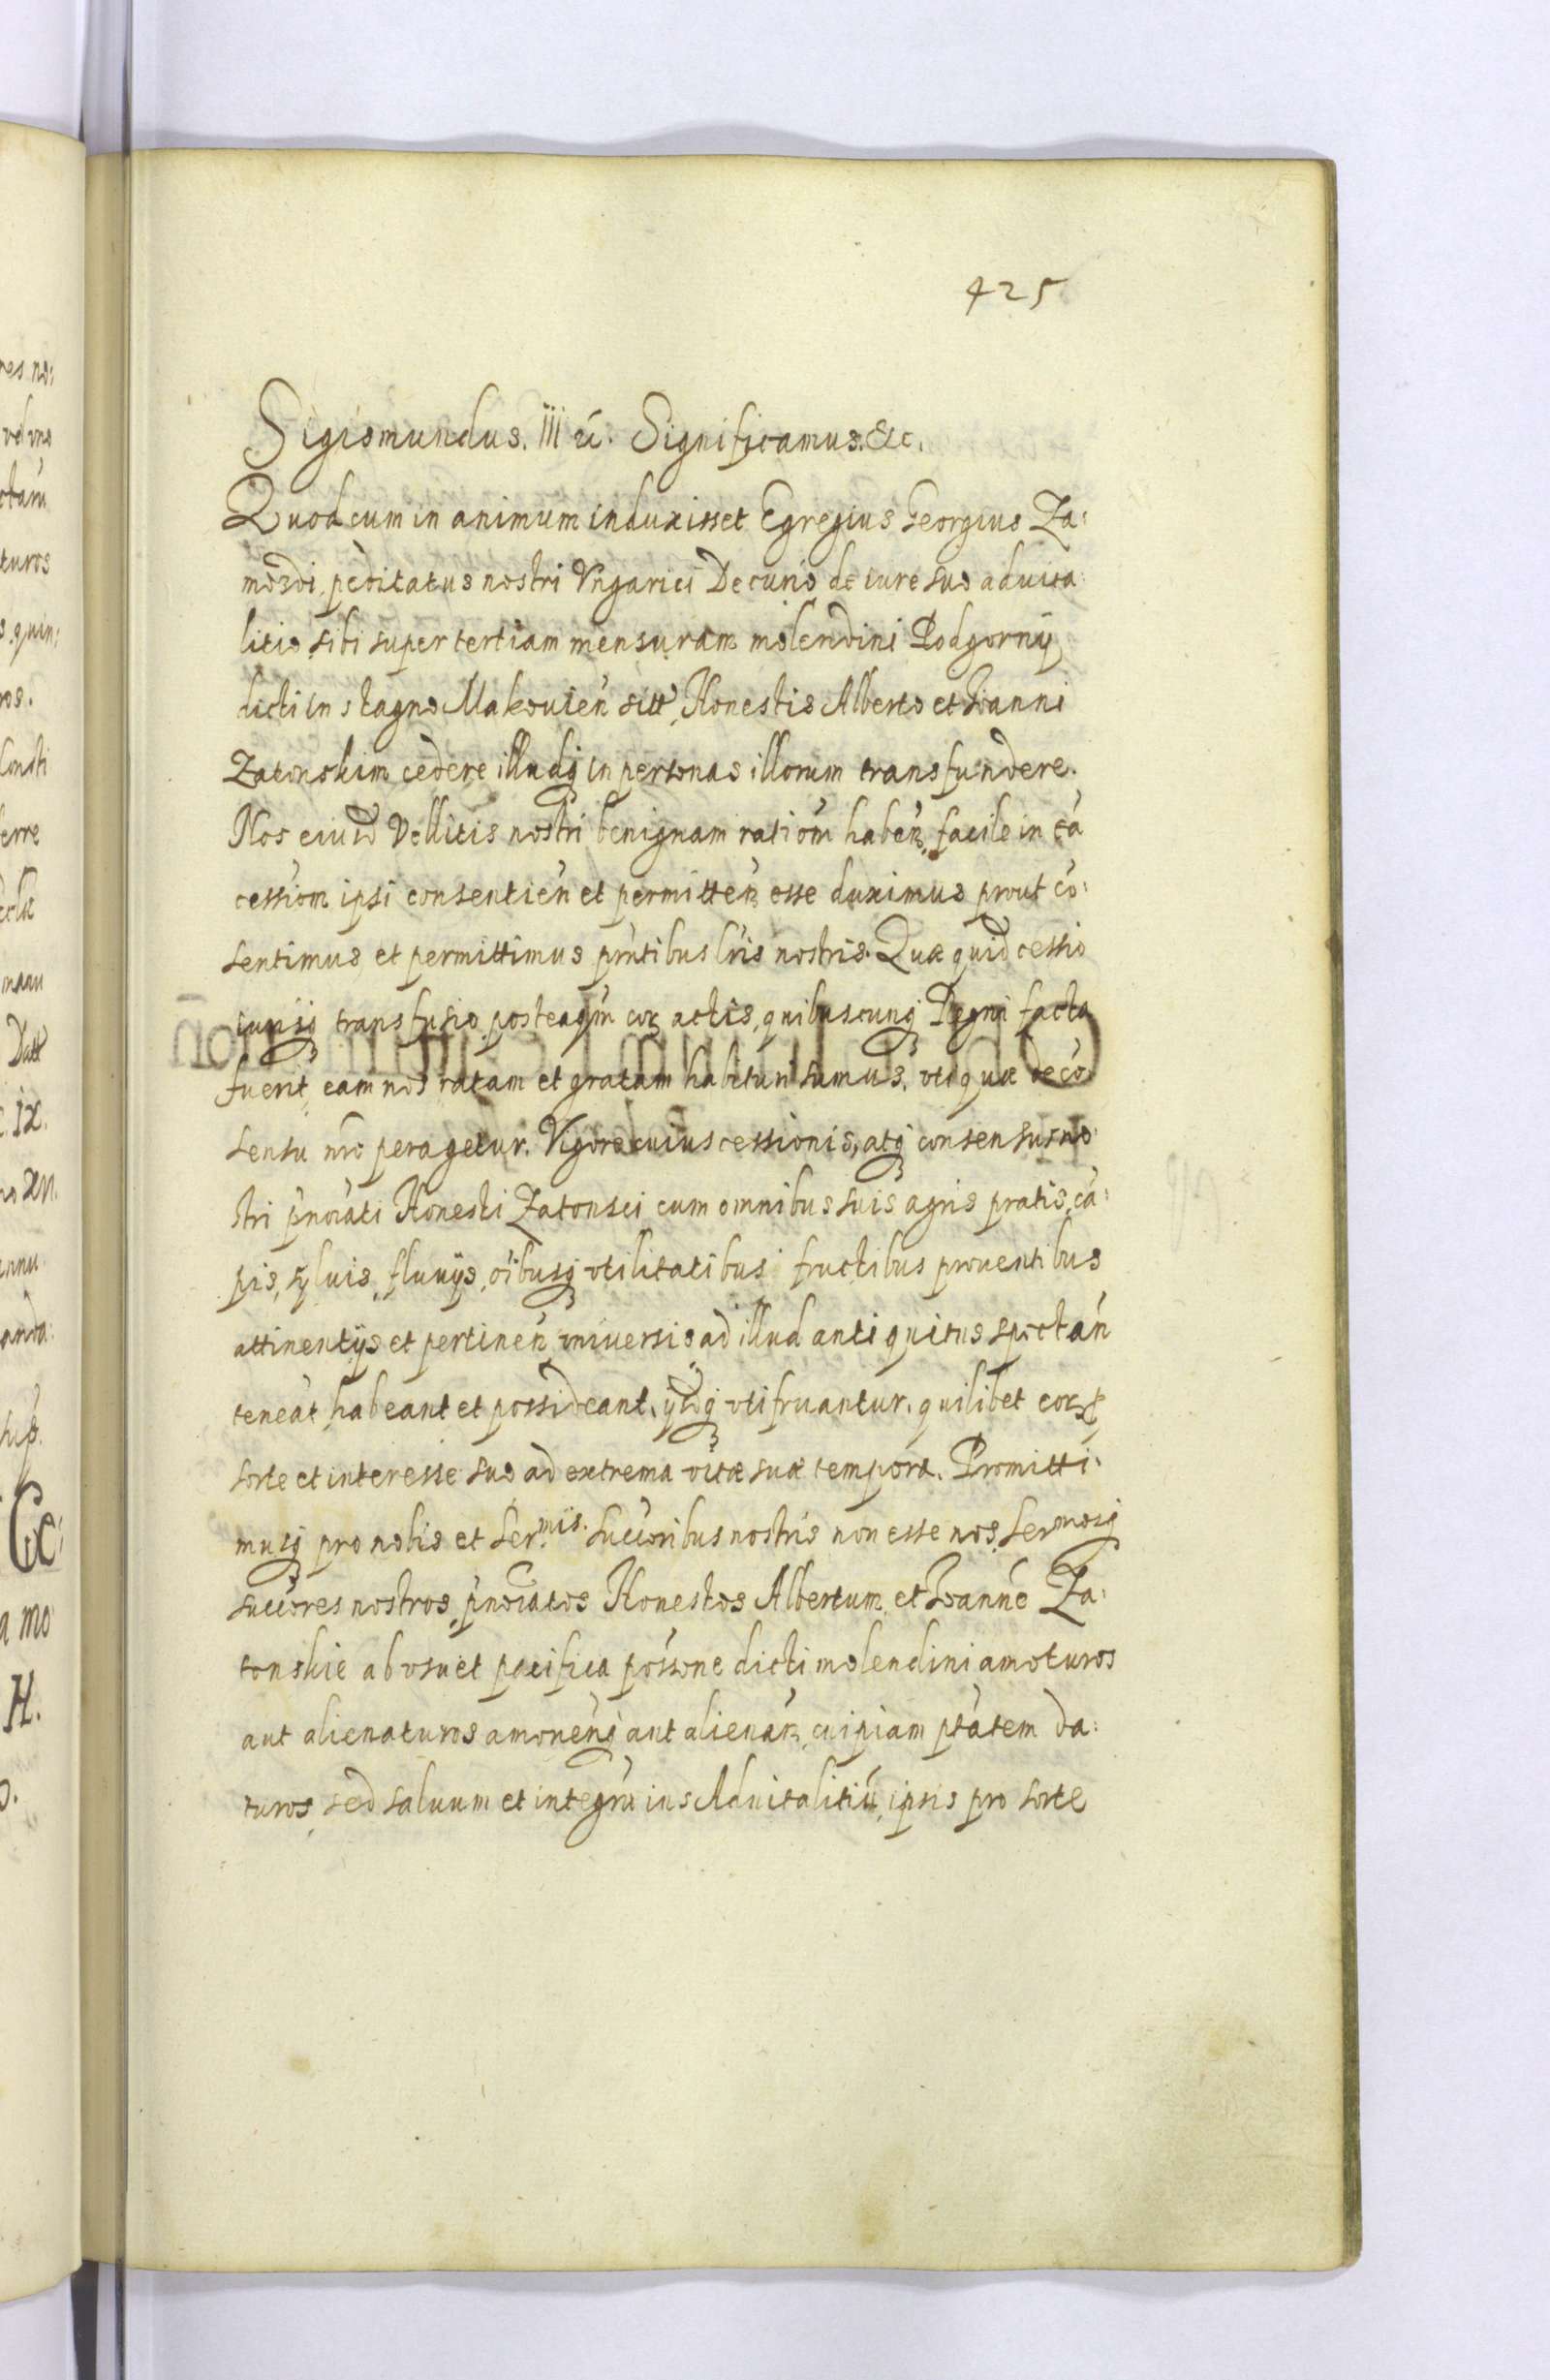 425
Sigismundus. III etć. Significamus. &c.
Quod cum in animum induxisset Egregius Georgius Za:
mordi peditatus nostri Vngarici Decurio de iure suo aduita
litio sibi super tertiam mensuram molendini Podgorny
dicti in stagno Makouień sitt, Honestis Alberto et Ioanni
Zatonskim cedere illudq in personas illorum transfundere.
Nos eiusd Vellitis nostri benignam ratiom haben, facile in eá
cessiom ipsi consentień et permitten esse duximus prout có:
sentimus et permittimus pñtibus lris nostris. Quæ quid cessio
iurisq transfusio posteaqm cor actis quibuscunq Regni facta
fuerit eam nos ratam et gratam habituri sumus, vti quæ de có
sensu nro peragetur. Vigore cuius cessionis, atq consensus no
stri pnoiati Honesti Zatonsci cum omnibus suis agris pratis, cá:
pis, syluis, fluuijs, oibusq vtilitatibus fructibus prouentibus
attinentijs et pertineń vniuersis ad illud antiquitus spectań
teneát habeant et possideant, ijsdq vti fruantur, quilibet eor p
sorte et interesse suo ad extrema vitæ suæ tempora. Promitti:
musq pro nobis et Ser.mis succoribus nostris non esse nos, Sermosq
succores nostros, pnoiatos Honestos Albertum et Ioanné Za:
tonskie ab vsu et pacifica possone dicti molendini amoturos
aut alienaturos amouenq aut alienan cuipiam ptatem da:
turos, sed saluum et integrú ius Aduitalitiú ipsis pro sorte